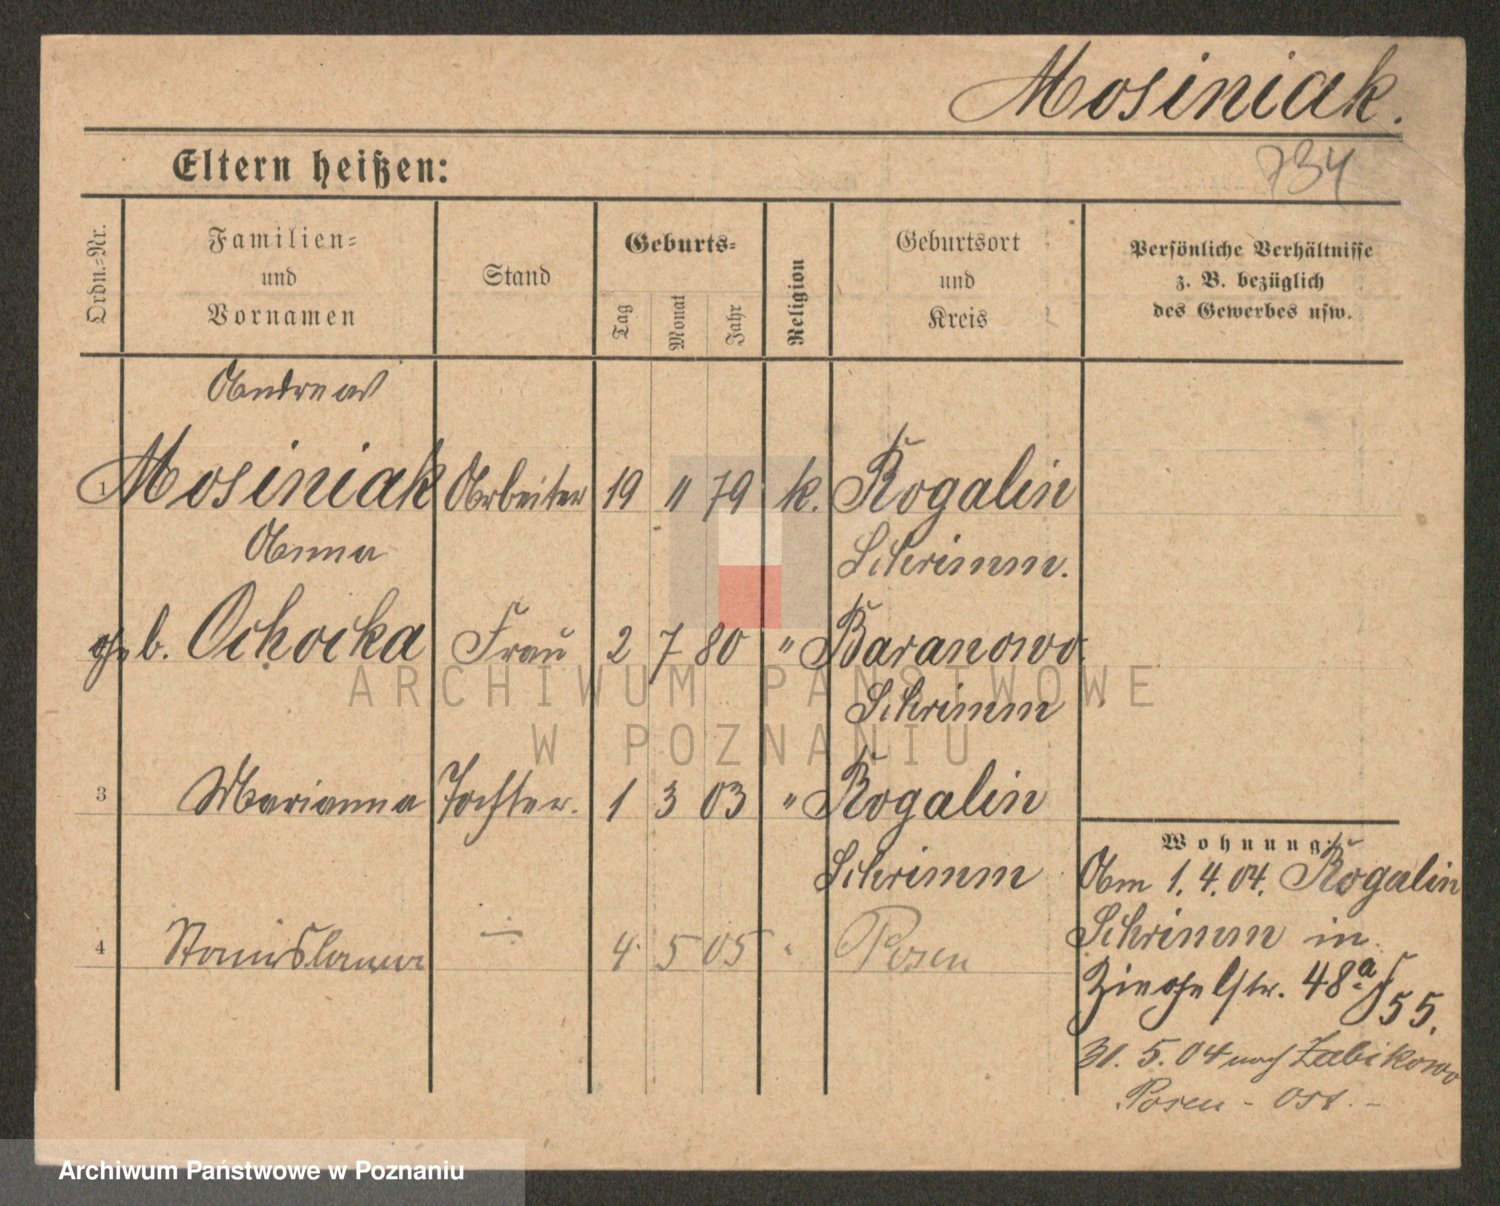 Mosiniak.
Eltern heißen:
734
Ordn.=Nr.
Familien=
und
Vornamen
Stand
Geburts=
Tag
Monat
Jahr
Religion
Geburtsort
und
Kreis
Persönliche Verhältnisse
z. B. bezüglich
des Gewerbes usw.
Andreas
1 Mosiniak Arbeiter 19 11 79 k. Rogalin
Schrimm.
Anna
geb. Ochocka Frau 2 7 80 " Baranowo.
Schrimm
3 Marianna Tochter. 1 3 03 " Rogalin
Schrimm
4 Stanislawa — 4. 5 05 " Posen
Wohnung:
Am 1.4.04. Rogalin
Schrimm in
Ziegelstr. 48a
55.
31.5.04 nach Zabikowo
Posen - Ost. -
ARCHIWUM PAŃSTWOWE
W POZNANIU
Archiwum Państwowe w Poznaniu